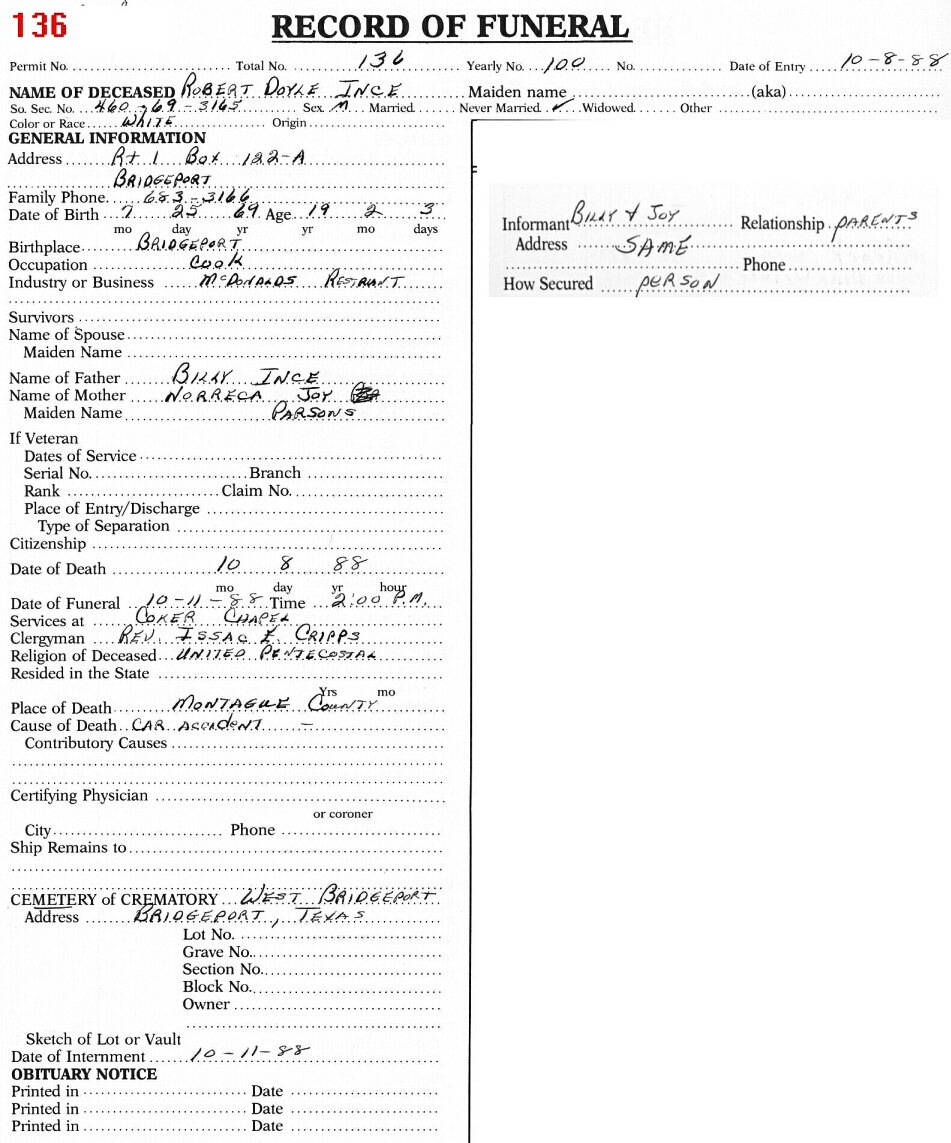 136
RECORD OF FUNERAL
Permit No. Total No. 136 Yearly No. 100 No. Date of Entry 10-8-88
NAME OF DECEASED ROBERT DOYLE INCE Maiden name (aka)
So. Sec. No. 460-69-3165 Sex M Married Never Married ✓ Widowed Other
Color or Race WHITE Origin
GENERAL INFORMATION
Address Rt 1 Box 122-A
BRIDGEPORT
Family Phone 683-3166
Date of Birth 7 25 69 Age 19 2 3
mo day yr yr mo days
Birthplace BRIDGEPORT
Occupation COOK
Industry or Business McDONALDS RESTRUNT
Survivors
Name of Spouse
Maiden Name
Name of Father BILLY INCE
Name of Mother NORRECA JOY
Maiden Name PARSONS
If Veteran
Dates of Service
Serial No. Branch
Rank Claim No.
Place of Entry/Discharge
Type of Separation
Citizenship
Date of Death 10 8 88
mo day yr hour
Date of Funeral 10-11-88 Time 2:00 P.M.
Services at COKER CHAPEL
Clergyman REV. ISSAC E CRIPPS
Religion of Deceased UNITED PENTECOSTAL
Resided in the State
Yrs mo
Place of Death MONTAGUE COUNTY
Cause of Death CAR ACCIDENT -
Contributory Causes
Certifying Physician
or coroner
City Phone
Ship Remains to
CEMETERY of CREMATORY WEST BRIDGEPORT
Address BRIDGEPORT, TEXAS
Lot No.
Grave No.
Section No.
Block No.
Owner
Sketch of Lot or Vault
Date of Internment 10-11-88
OBITUARY NOTICE
Printed in Date
Printed in Date
Printed in Date
Informant BILLY & JOY Relationship PARENTS
Address SAME
Phone
How Secured PERSON